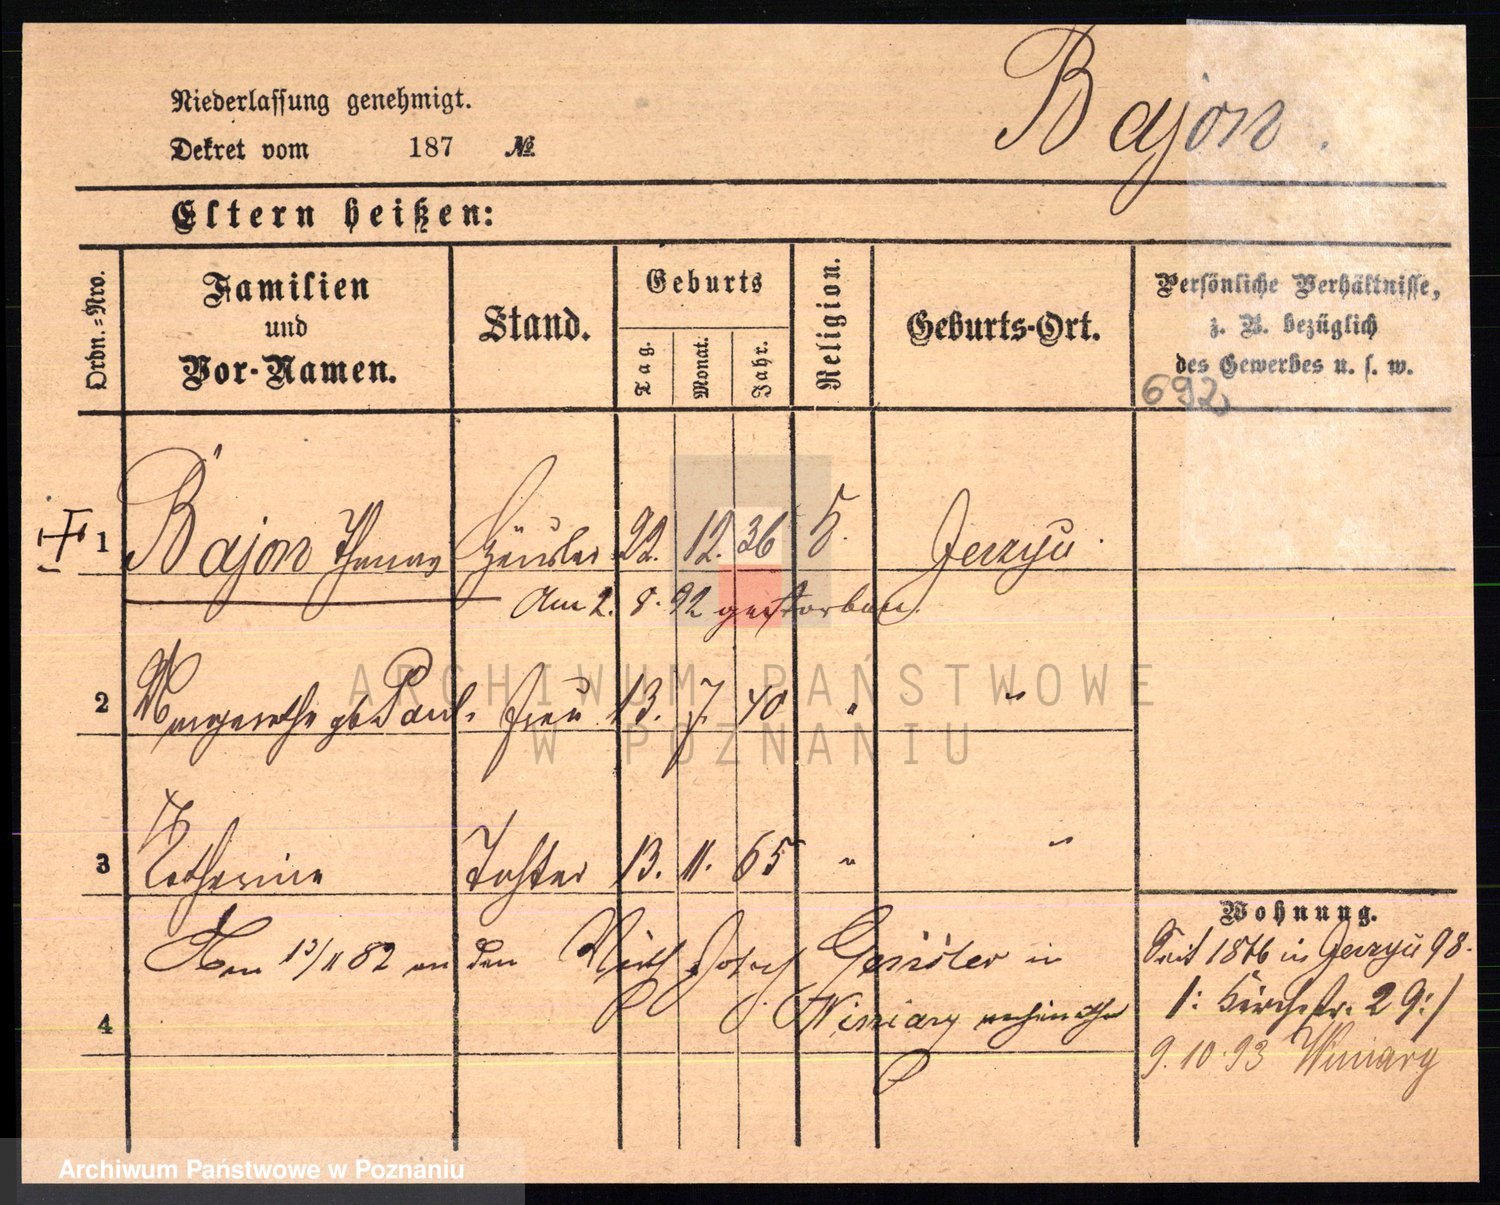 Bajon.
Niederlassung genehmigt.
Dekret vom 187 №
Eltern heißen:
Ordn.=Nro.
Familien
und
Vor-Namen.
Stand.
Geburts
Tag.
Monat.
Jahr.
Religion.
Geburts-Ort.
Persönliche Verhältnisse,
z. B. bezüglich
des Gewerbes u. s. w.
692
1 Bajon Thomas Häusler 22. 12. 36 Jerzyce
Am 2. 8. 92 gestorben.
2 Margarethe gb Paul. Frau 13. 7. 40 " "
3 Katharina Tochter 13. 11. 65 " "
4
Am 13/11 82 an den Wirth Josef Genšler in
Winiary verheirathet
Wohnung.
Seit 1876 in Jerzyce 98.
/: Kirchstr. 29 :/
9.10.93 Winiary
ARCHIWUM PAŃSTWOWE
W POZNANIU
Archiwum Państwowe w Poznaniu